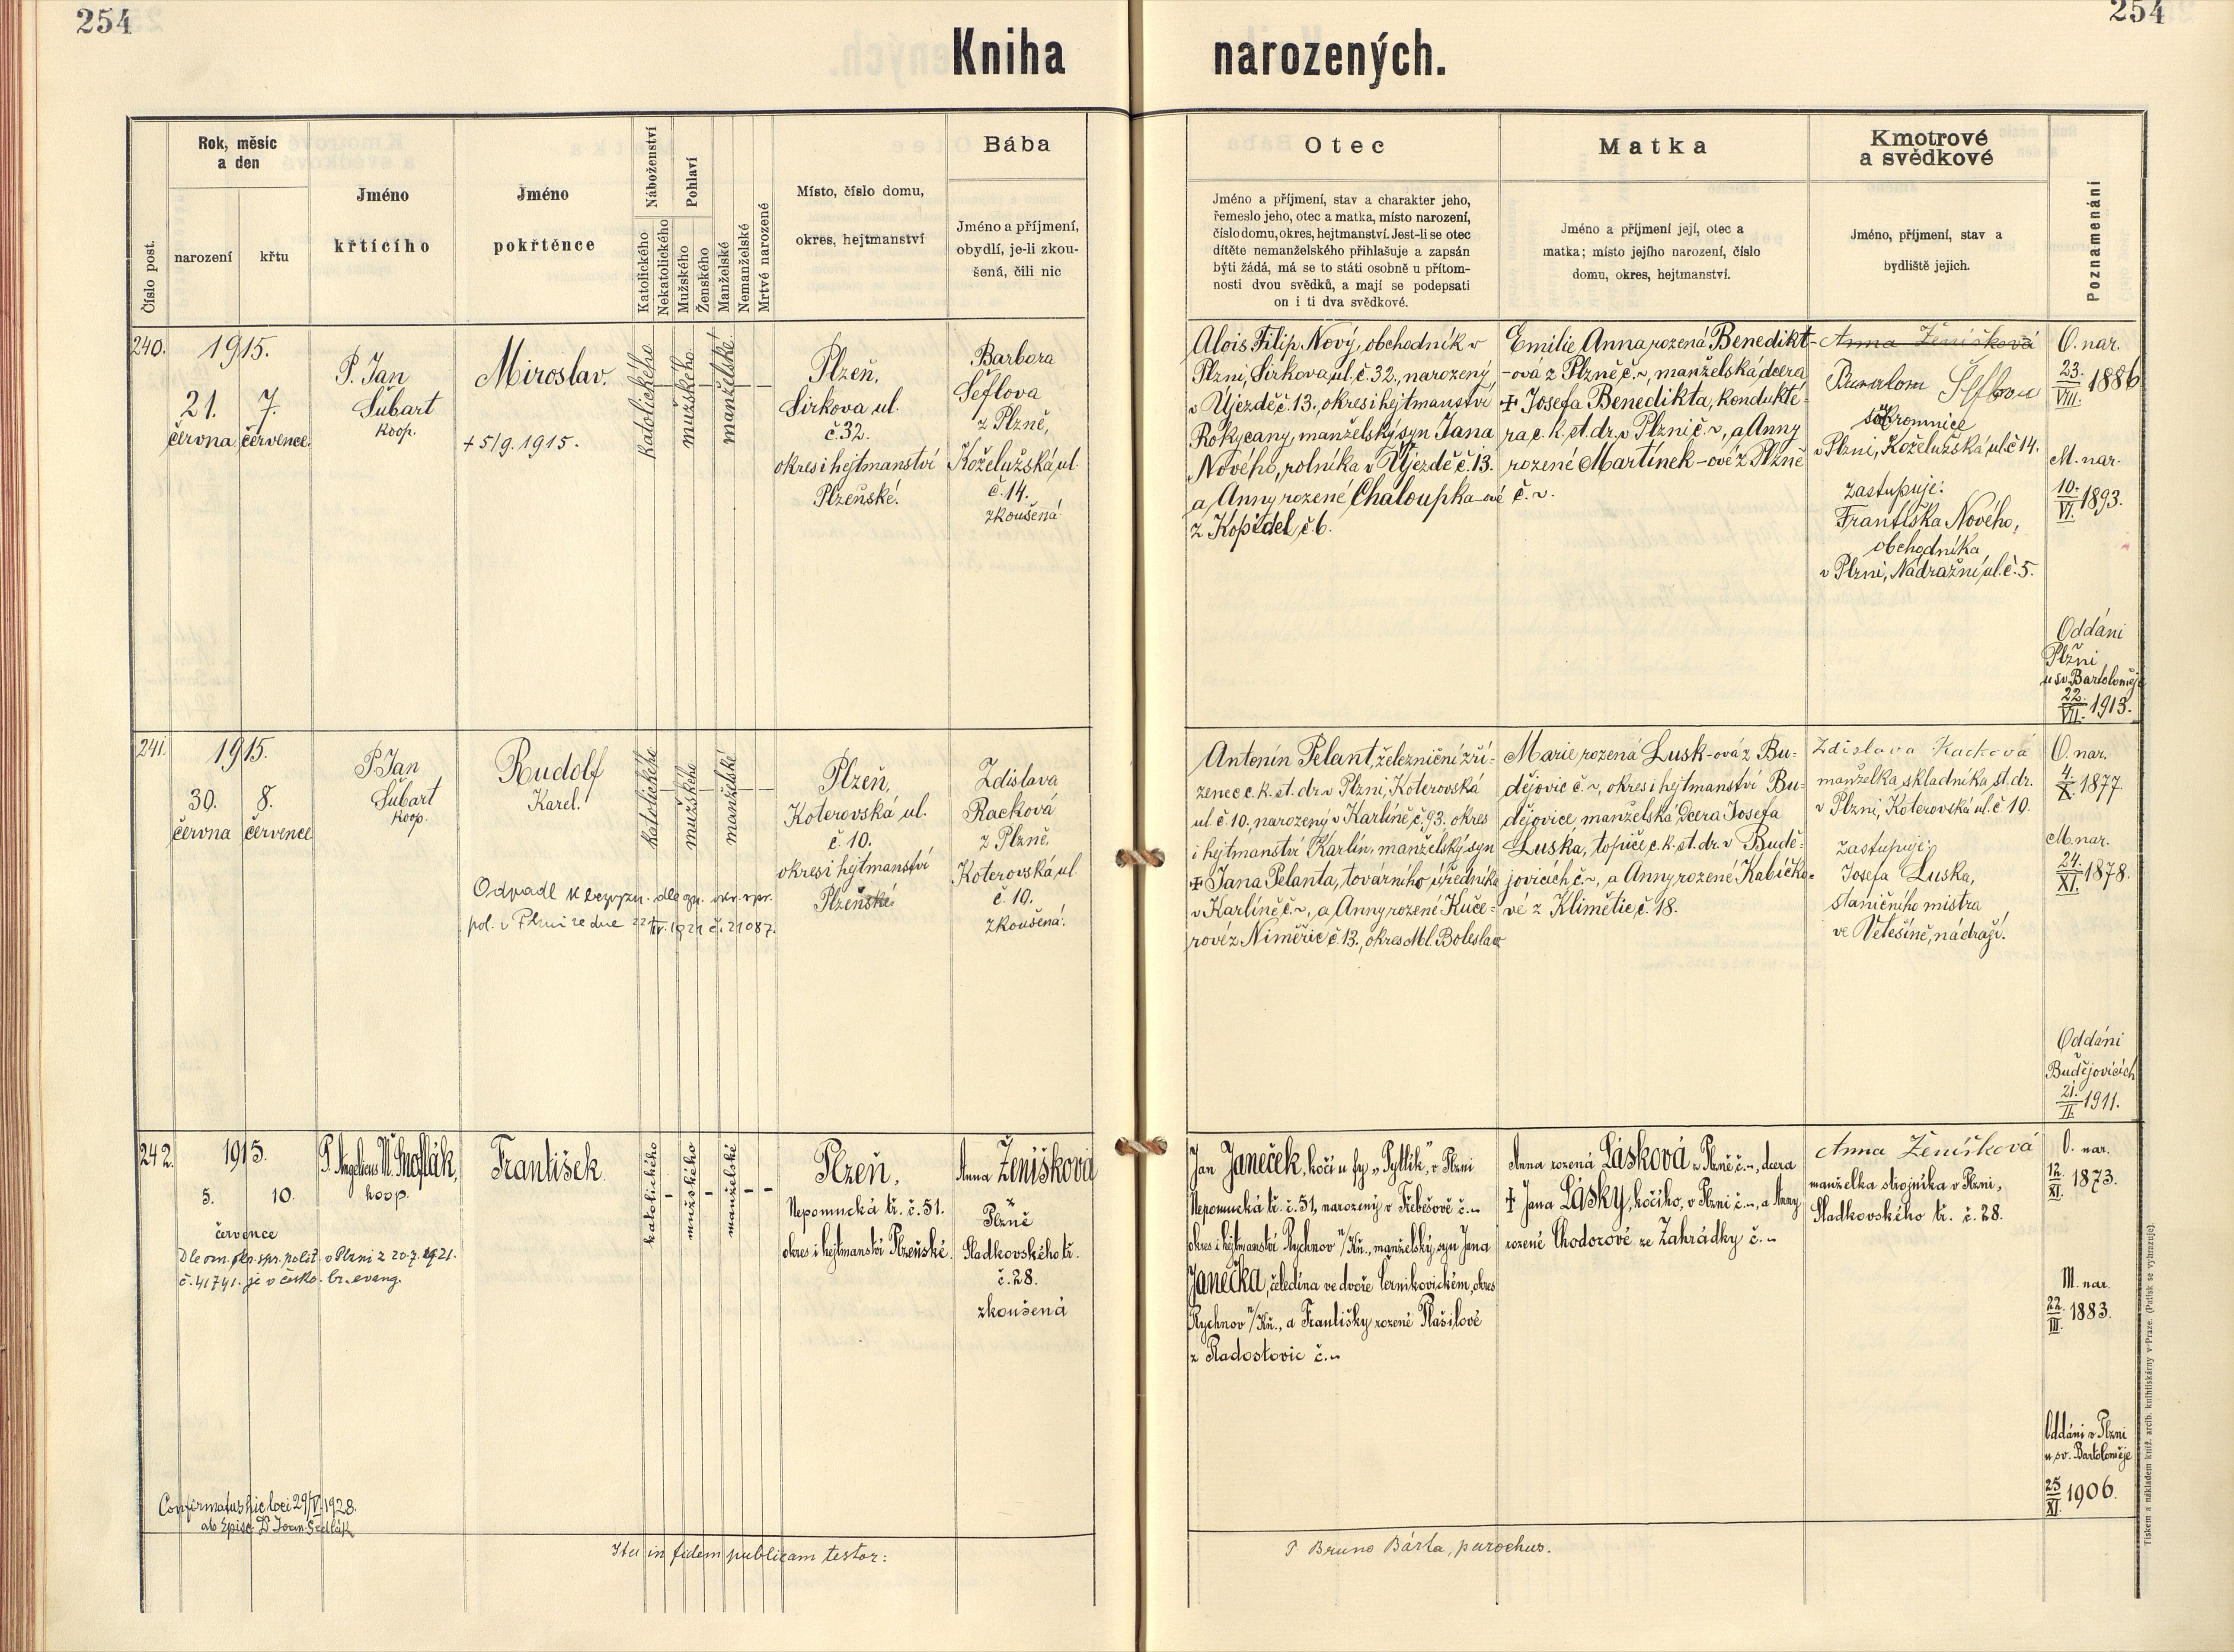 254
254
Kniha narozených.
Číslo post.
Rok, měsíc
a den
narození
křtu
Jméno
křtícího
Jméno
pokřtěnce
Náboženství
Katolického
Nekatolického
Pohlaví
Mužského
Ženského
Manželské
Nemanželské
Mrtvé narozené
Místo, číslo domu,
okres, hejtmanství
Bába
Jméno a příjmení,
obydlí, je-li zkou-
šená, čili nic
Otec
Jméno a příjmení, stav a charakter jeho,
řemeslo jeho, otec a matka, místo narození,
číslo domu, okres, hejtmanství. Jest-li se otec
dítěte nemanželského přihlašuje a zapsán
býti žádá, má se to státi osobně u přítom-
nosti dvou svědků, a mají se podepsati
on i ti dva svědkové.
Matka
Jméno a příjmení její, otec a
matka; místo jejího narození, číslo
domu, okres, hejtmanství.
Kmotrové
a svědkové
Jméno, příjmení, stav a
bydliště jejich.
Poznamenání
240.
1915.
21. 7.
června července.
P. Jan
Šubart
koop.
Miroslav.
+ 5/9. 1915.
katolického
mužského
manželské
Plzeň,
Sirkova ul.
č. 32.
okres i hejtmanství
Plzeňské.
Barbora
Šeflova
z Plzně,
Koželužská ul.
č. 14.
zkoušená
Alois Filip Nový, obchodník v
Plzni, Sirkova ul. č. 32., narozený
v Újezdě č. 13., okres i hejtmanství
Rokycany, manželský syn Jana
Nového, rolníka v Újezdě č. 13.
a Anny rozené Chaloupka-ové
z Kopidel, č. 6.
Emilie Anna rozená Benedikt-
-ova z Plzně č. ~, manželská dcera
✝ Josefa Benedikta, kondukté-
ra c. k. st. dr. v Plzni č. ~, a Anny
rozené Martínek-ové z Plzně
č. ~.
Anna Ženíšková
v Plzni, Koželužská ul. č. 14.
zastupuje:
Františka Nového,
obchodníka
v Plzni, Nádražní ul. č. 5.
O. nar.
23./VIII. 1886
M. nar.
10./VI. 1893.
Oddáni
v
Plzni
u sv. Bartoloměje
22./VII. 1913.
241.
1915.
30. 8.
června července
P. Jan
Šubart
koop.
Rudolf
Karel.
Odpadl k bezvyzn. dle ozn. okr. spr.
pol. v Plzni ze dne 22/IV. 1921 č. 21087.
katolického
mužského
manželské
Plzeň,
Koterovská ul.
č. 10.
okres i hejtmanství
Plzeňské.
Zdislava
Racková
z Plzně,
Koterovská ul.
č. 10.
zkoušená.
Antonín Pelant, železniční zří-
zenec c. k. st. dr. v Plzni, Koterovská
ul. č. 10., narozený v Karlíně č. 93. okres
i hejtmanství Karlín, manželský syn
✝ Jana Pelanta, továrního úředníka
v Karlíně č. ~, a Anny rozené Kuče-
rové z Niměřic č. 13., okres Ml. Boleslav
Marie rozená Lusk-ová z Bu-
dějovic č. ~, okres i hejtmanství Bu-
dějovice manželská dcera Josefa
Luska, topiče c. k. st. dr. v Budě-
jovicích č. ~, a Anny rozené Kabíčko-
vé z Klimětic č. 18.
Zdislava Racková
manželka skladníka st. dr.
v Plzni, Koterovská ul. č. 10.
zastupuje:
Josefa Luska,
staničního mistra
ve Velešíně, nádraží.
O. nar.
4./X. 1877.
M. nar.
24./XI. 1878.
Oddáni
v
Budějovicích
21./II. 1911.
242.
1915.
5. 10.
července
Dle ozn. okr. spr. polit. v Plzni z 20.7. 1921.
č. 41741. je v česko. br. evang.
koop.
František.
katolického
mužského
manželské
Plzeň,
Nepomucká tř. č. 51.
okres i hejtmanství Plzeňské.
Anna Ženíšková
z
Plzně
Sladkovského tř.
č. 28.
zkoušená
Jan Janeček, kočí u fy „Pytlík", v Plzni
Nepomucká tř. č. 51, narozený v Třebešově č. ~
okres i hejtmanství Rychnov n/Kn., manželský syn Jana
Janečka, čeledína ve dvoře černikovickém, okres
Rychnov n/Kn., a Františky rozené Plašilové
z Radostovic č. ~
Anna rozená Lásková z Plzně č. ~, dcera
✝ Jana Lásky, kočího, v Plzni č. ~, a Anny
rozené Chodorové ze Zahrádky č. ~
Anna Ženíšková
manželka strojníka v Plzni,
Sladkovského tř. č. 28.
O. nar.
12./XI. 1873.
M. nar.
22./III. 1883.
Oddáni v Plzni
u sv. Bartoloměje
25/XI. 1906.
Confirmatus hic loci 29/V. 1928.
ab Episc. Dr Joan. Sedlák
Ita in fidem publicam testor:
P. Bruno Bárta, parochus.
Tiskem a nákladem kníž. arcib. knihtiskárny v Praze. (Patisk se vyhrazuje).